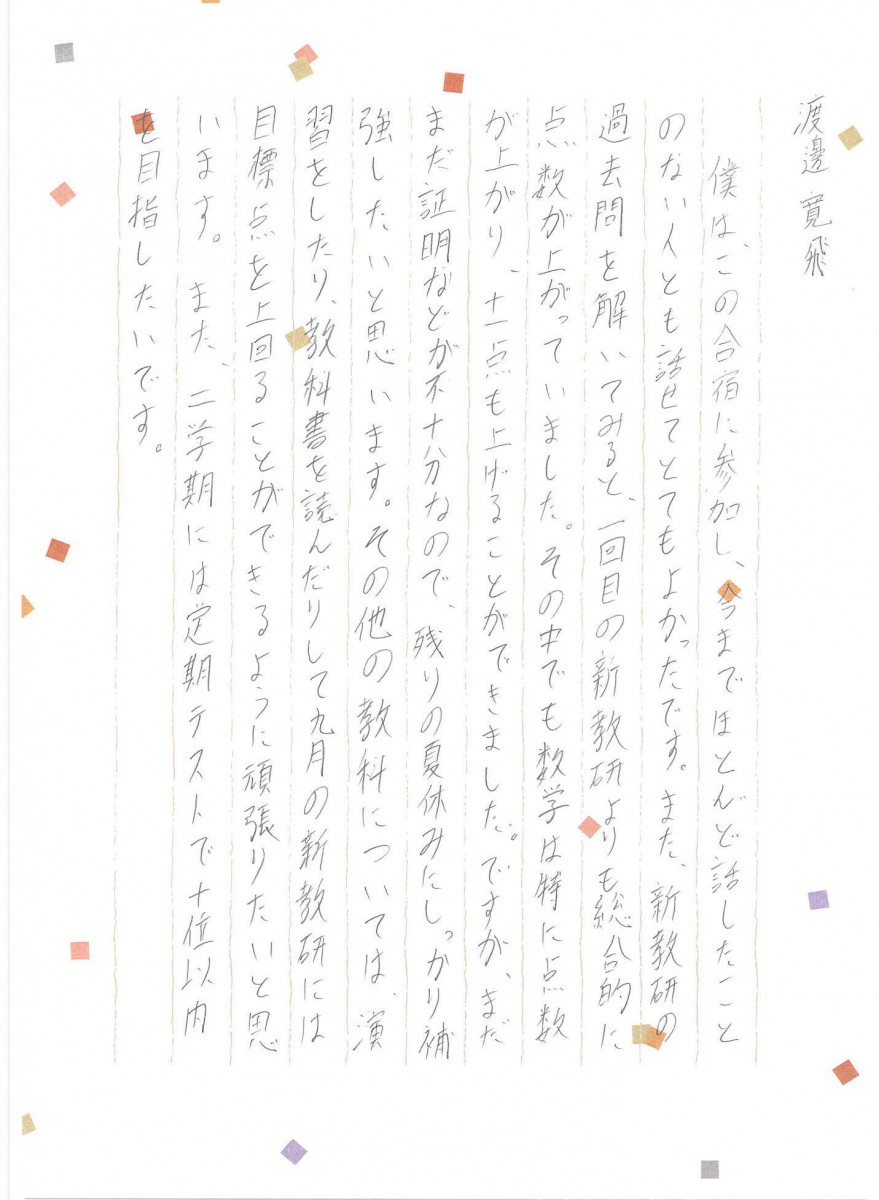 渡邊 寛飛
僕は、この合宿に参加し、今までほとんど話したこと
のない人とも話せてとてもよかったです。また、新教研の
過去問を解いてみると、一回目の新教研よりも総合的に
点数が上がっていました。その中でも数学は特に点数
が上がり、十一点も上げることができました。ですが、まだ
まだ証明などが不十分なので、残りの夏休みにしっかり補
強したいと思います。その他の教科については、演
習をしたり、教科書を読んだりして九月の新教研には
目標点を上回ることができるように頑張りたいと思
います。また、二学期には定期テストで十位以内
を目指したいです。